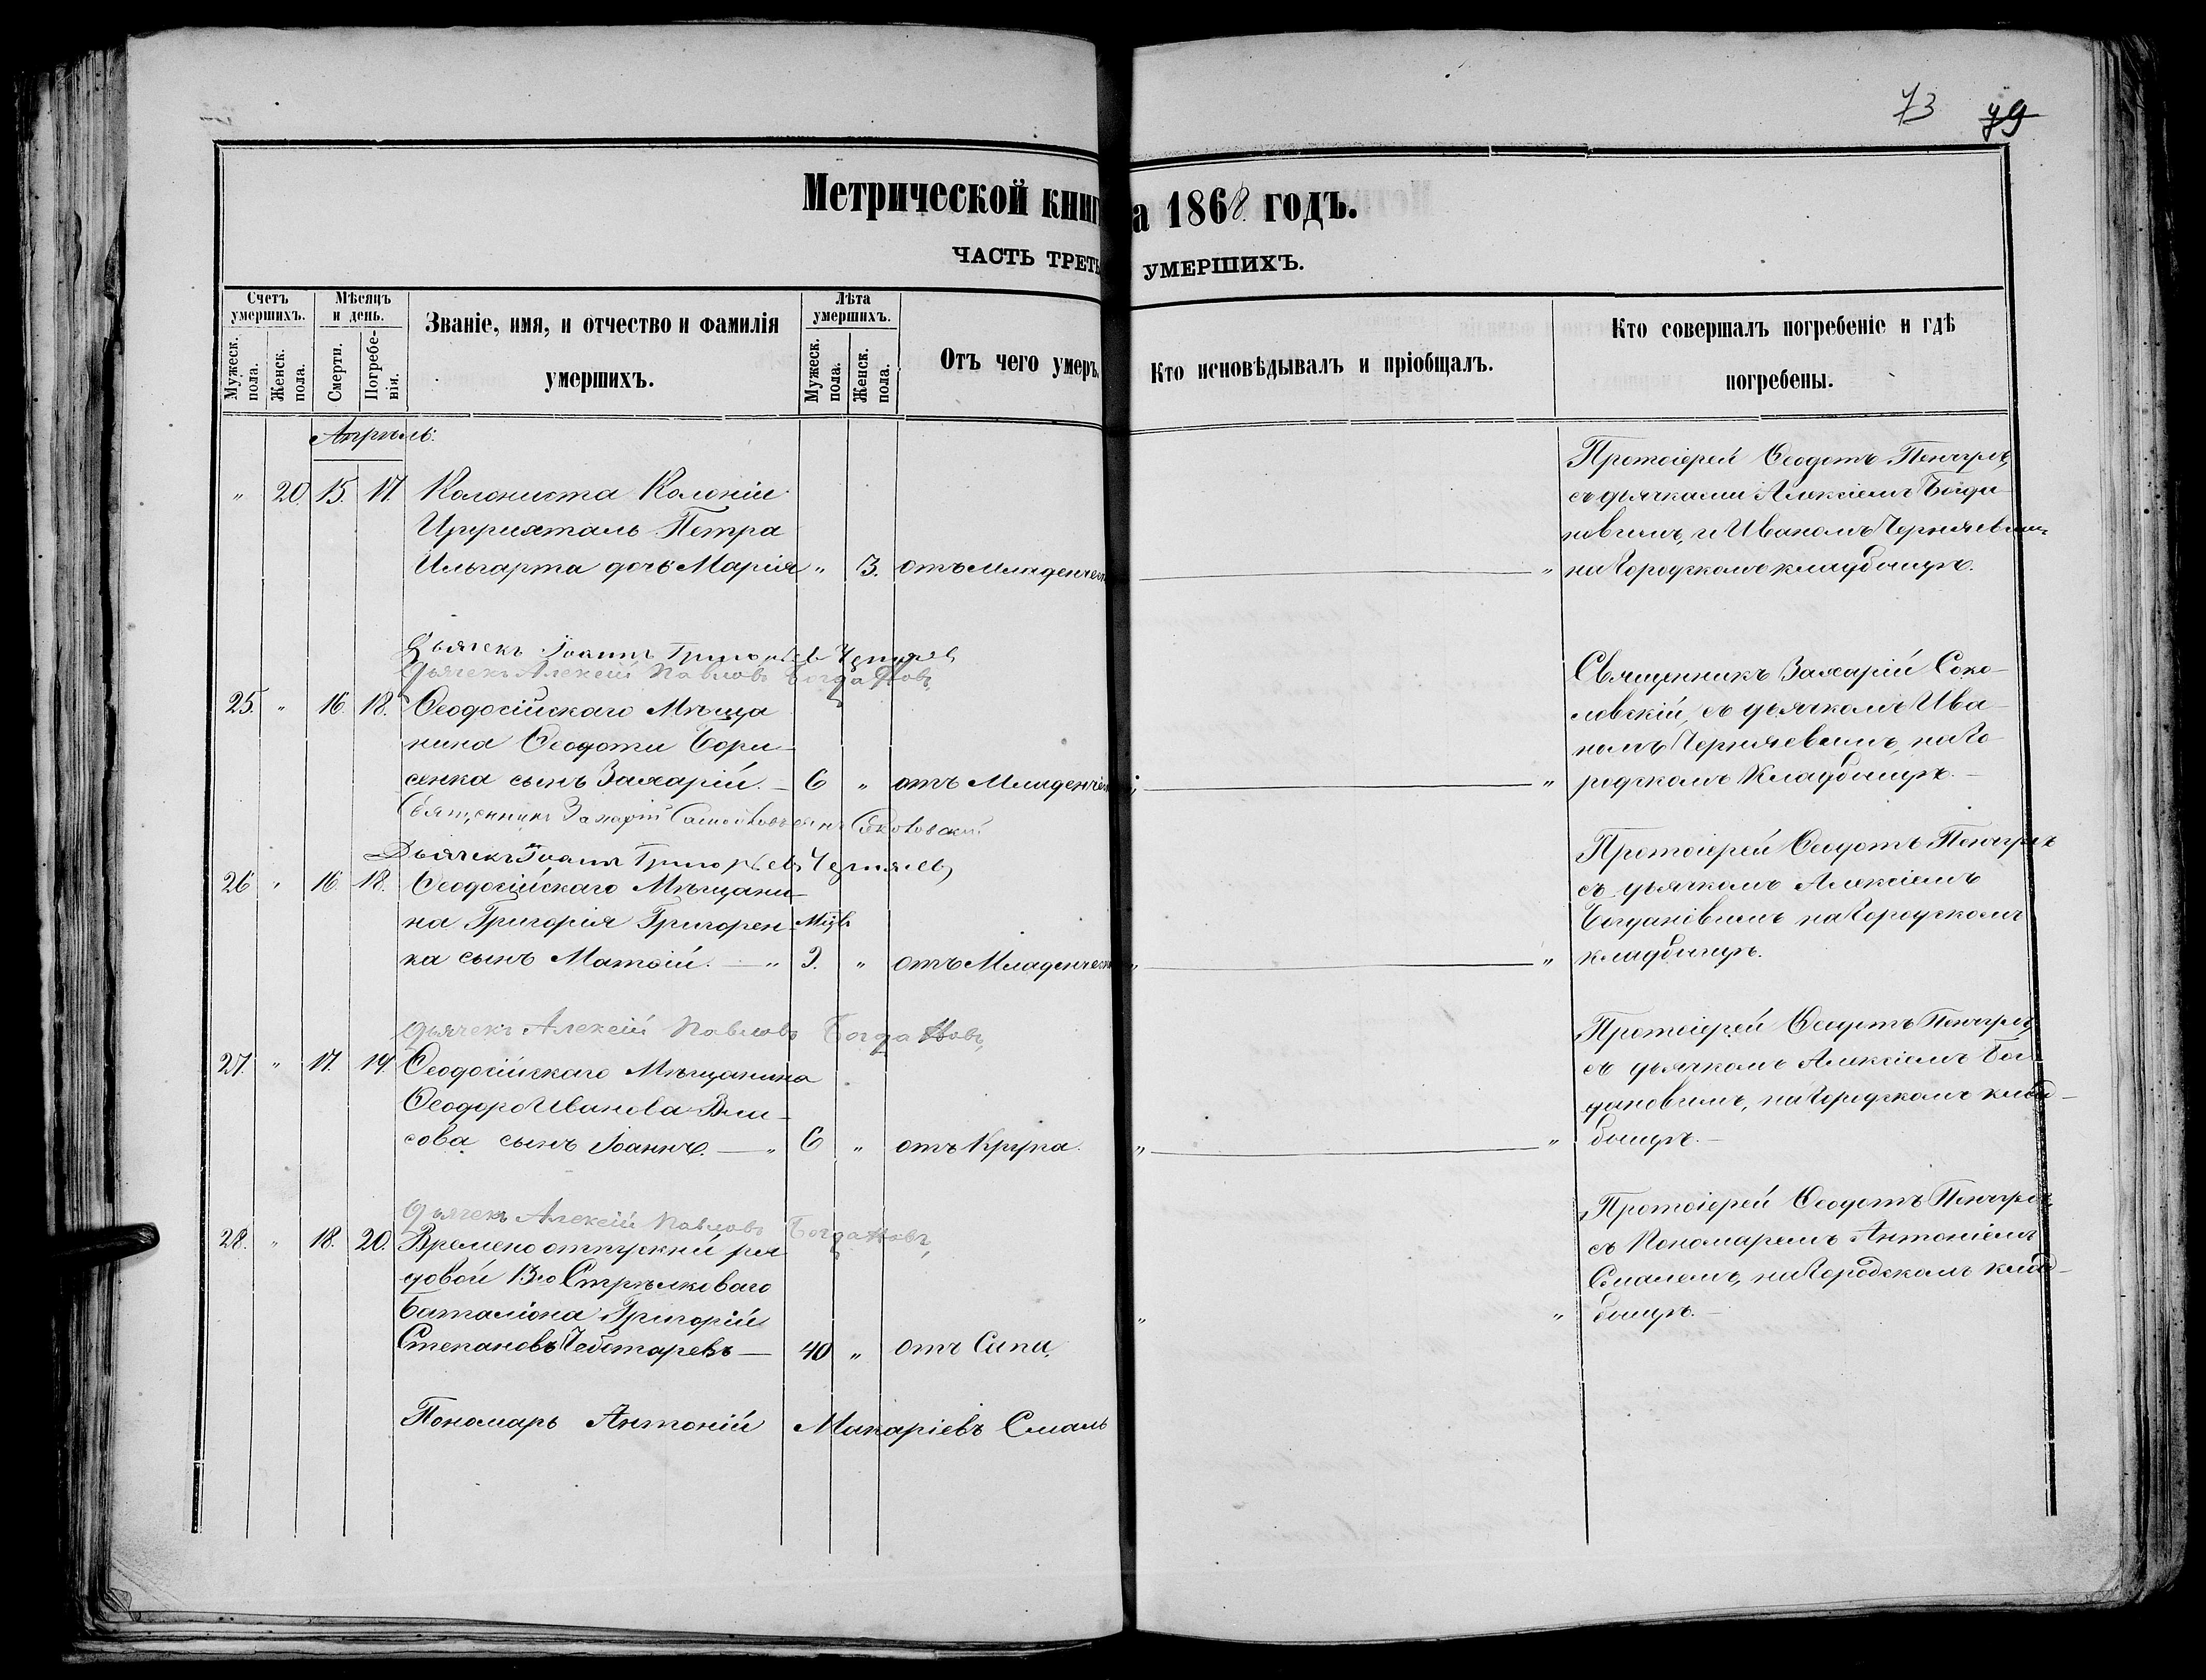 73 79
Метрической книг а 1868 годъ.
ЧАСТЬ ТРЕТЬ УМЕРШИХЪ.
Счетъ умершихъ.
Мужеск. пола.
Женск. пола.
Мѣсяцъ и день.
Смерти.
Погребенія.
Званіе, имя, и отчество и фамилія
умершихъ.
Лѣта умершихъ.
Мужеск. пола.
Женск. пола.
Отъ чего умеръ.
Кто исповѣдывалъ и пріобщалъ.
Кто совершалъ погребеніе и гдѣ
погребены.
Апрѣль:
" 20. 15. 17. Колониста Колоніи
Цирихталь Петра
Ильгарта дочь Марія " 3. отъ Младенческ
Протоіерей Ѳеодотъ
съ дьячками Алексіемъ Богда
новымъ, и Иваномъ Чернявымъ
" на Городскомъ кладбищѣ.
Дьячекъ Іоаннъ Григорьевъ Чернявъ
Дьячекъ Алексій Павловъ Богдановъ
25. " 16. 18. Ѳеодосійскаго Мѣща
нина Ѳеодоти Бори-
сенка сынъ Захарій. — 6 " отъ Младенческ
Священникъ Захарій Соко-
ловскій, съ дьячкомъ Ива-
номъ Чернявымъ, на Го-
" родскомъ Кладбищѣ. —
Священникъ Захарій Самойловъ сынъ Соколовскій
Дьячекъ Іоаннъ Григорьевъ Чернявъ
26 " 16. 18. Ѳеодосійскаго Мѣщани-
на Григорія Григорен- Мцѣ
ка сынъ Матѳій. — " 9. " отъ Младенческ
Протоіерей Ѳеодотъ
съ дьячкомъ Алексіемъ
Богдановымъ на Городскомъ
" кладбищѣ.
Дьячекъ Алексій Павловъ Богдановъ
27. " 17. 19. Ѳеодосійскаго Мѣщанина
Ѳеодора Иванова Вла-
сова сынъ Іоаннъ. — " 6 " отъ Крупа.
Протоіерей Ѳеодотъ
съ дьячкомъ Алексіемъ Бог
дановымъ, на Городскомъ клад-
" бищѣ. —
Дьячекъ Алексій Павловъ Богдановъ
28. " 18. 20. Времено отпускній ря
довой 13го Стрѣлковаго
баталіона Григорій
Степановъ — 40 " отъ Сапа.
Протоіерей Ѳеодотъ
съ Пономаремъ Антоніемъ
Смалемъ, на Городскомъ клад-
" бищѣ. —
Пономарь Антоній Макаріевъ Смаль